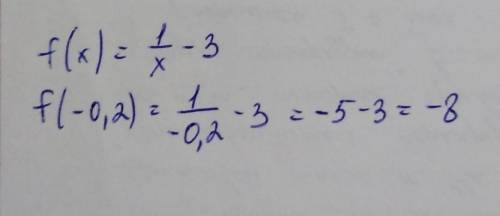 f(x) = 1/x - 3
f(-0,2) = 1/-0,2 - 3 = -5 - 3 = -8